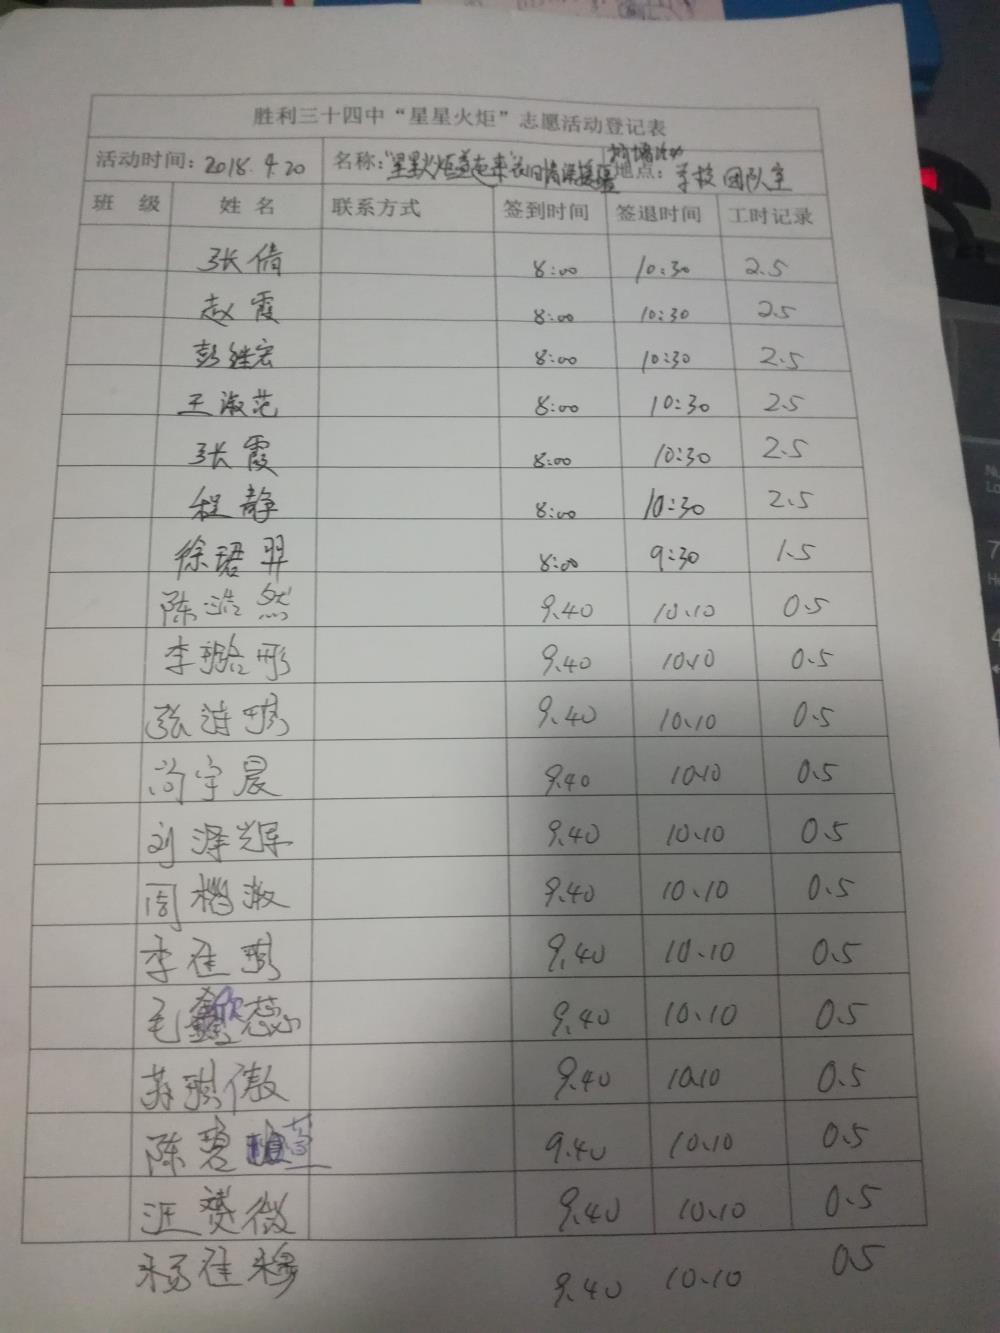 胜利三十四中“星星火炬”志愿活动登记表
活动时间：2018.4.20 名称：“星星火炬 地点：学校团队室
班 级 姓 名 联系方式 签到时间 签退时间 工时记录
张倩 8:00 10:30 2.5
赵霞 8:00 10:30 2.5
彭继宏 8:00 10:30 2.5
王淑范 8:00 10:30 2.5
张霞 8:00 10:30 2.5
程静 8:00 10:30 2.5
徐珺羿 8:00 9:30 1.5
陈浩然 9.40 10.10 0.5
李璐彤 9.40 10.10 0.5
张 9.40 10.10 0.5
尚宇晨 9.40 10.10 0.5
刘泽辉 9.40 10.10 0.5
周 9.40 10.10 0.5
李佳 9.40 10.10 0.5
毛 蕊 9.40 10.10 0.5
苏 傲 9.40 10.10 0.5
陈碧 9.40 10.10 0.5
汪赟微 9.40 10.10 0.5
杨佳穆 9.40 10.10 0.5